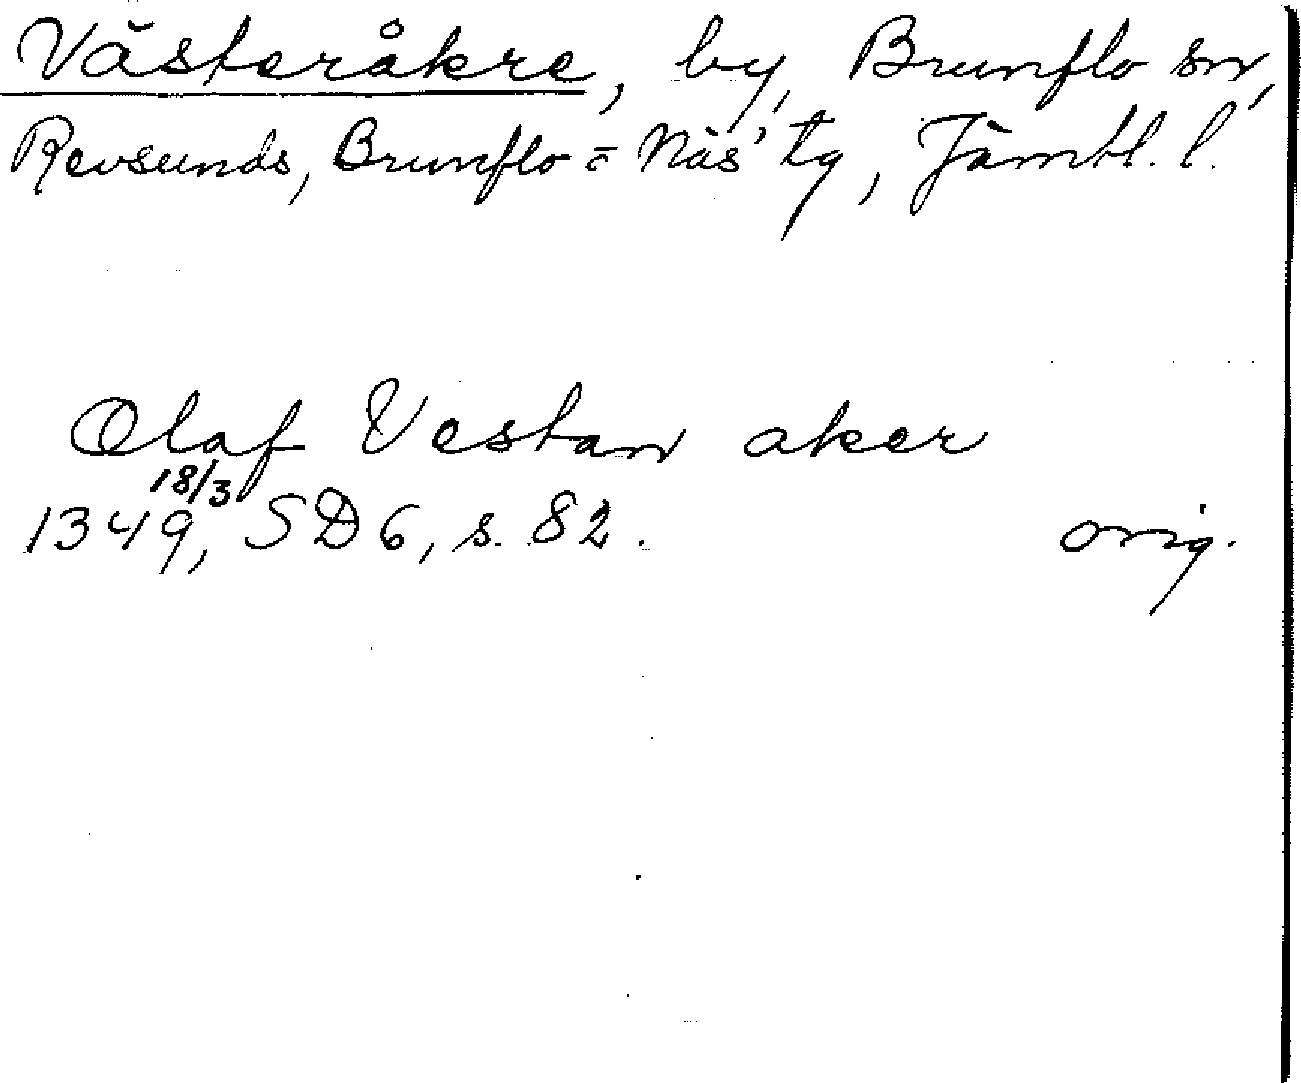 Västeråkre, by, Brunflo sn,
Revsunds, Brunflo = Näs' tg, Jämtl. l.
Olaf Vestan aker
18/3
1349, SD 6, s. 82. orig.